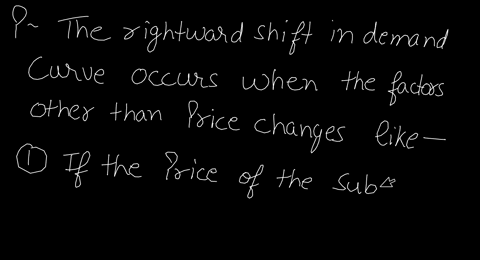 P~ The rightward shift in demand
Curve occurs when the factors
other than Price changes like—
① If the Price of the sub